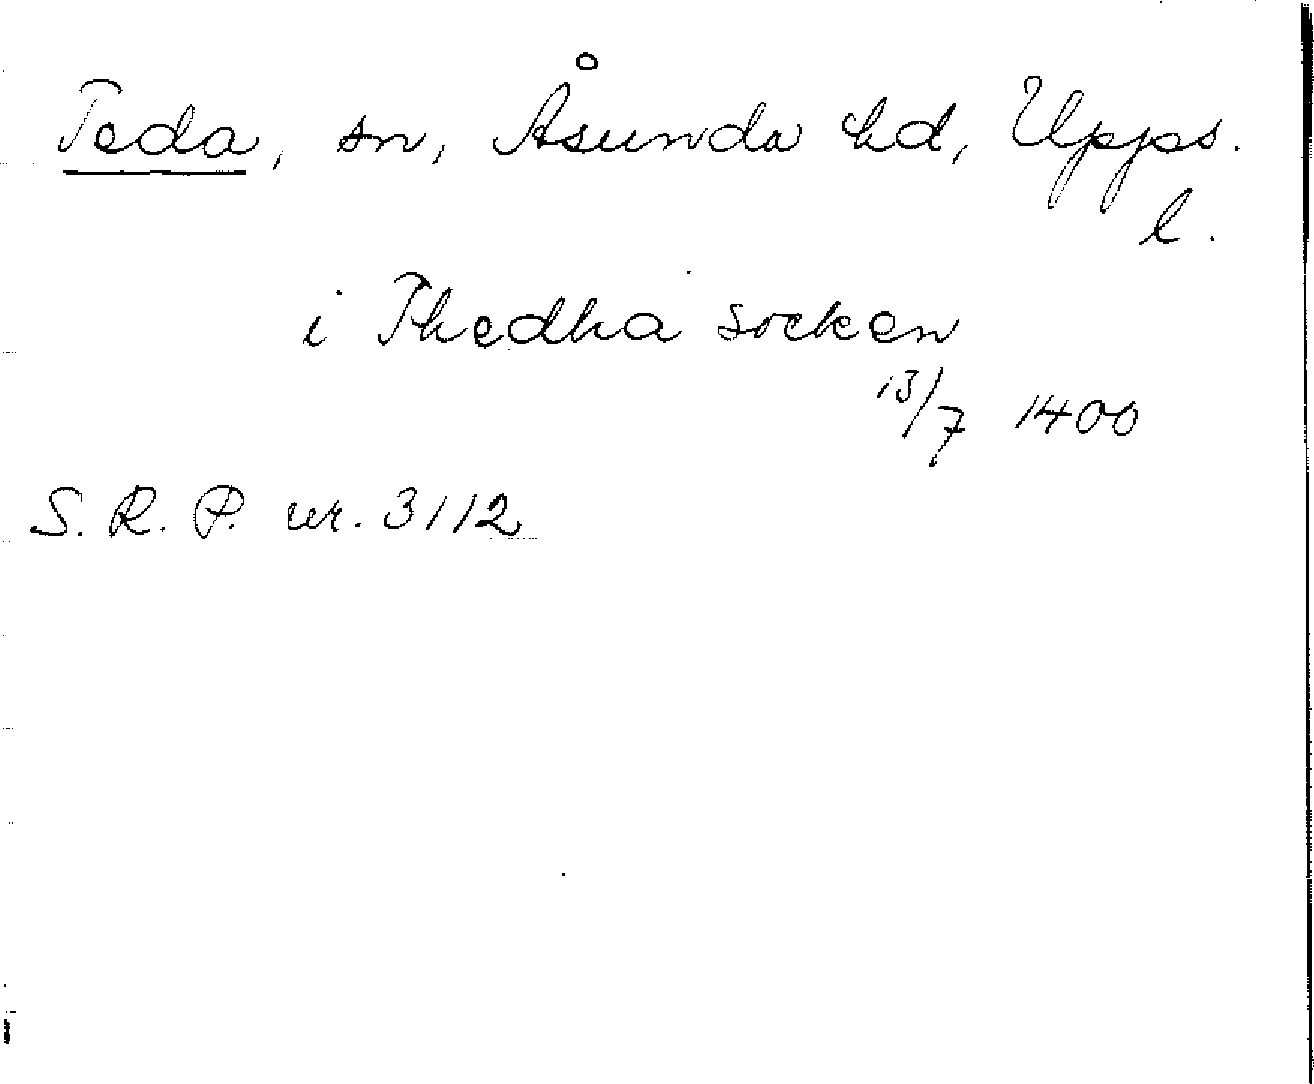 Teda, sn, Åsunda hd, Upps.
l.
i Thedha socken
13/7 1400
S. R. P. nr. 3112